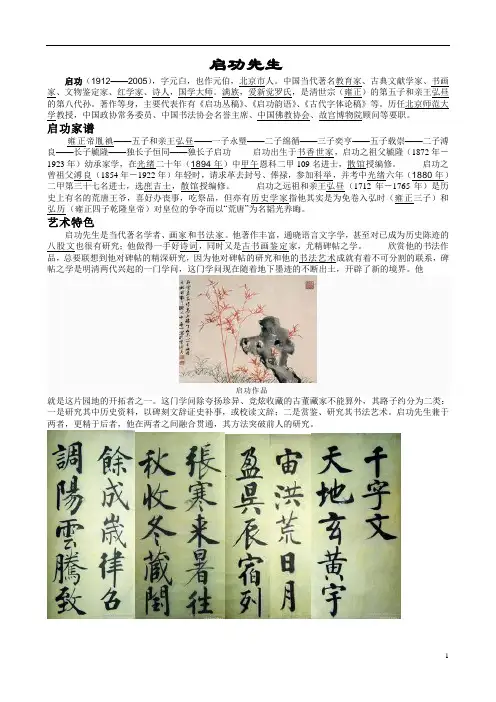 启功先生
启功（1912——2005），字元白，也作元伯，北京市人。中国当代著名教育家、古典文献学家、书画
家、文物鉴定家、红学家、诗人，国学大师、满族，爱新觉罗氏，是清世宗（雍正）的第五子和亲王弘昼
的第八代孙。著作等身，主要代表作有《启功丛稿》、《启功韵语》、《古代字体论稿》等。历任北京师范大
学教授，中国政协常务委员、中国书法协会名誉主席、中国佛教协会、故宫博物院顾问等要职。
启功家谱
雍正帝胤禛——五子和亲王弘昼——一子永璧——二子绵循——三子奕亨——五子载崇——二子溥
良——长子毓隆——独长子恒同——独长子启功 启功出生于书香世家，启功之祖父毓隆（1872 年－
1923 年）幼承家学，在光绪二十年（1894 年）中甲午恩科二甲 109 名进士，散馆授编修。 启功之
曾祖父溥良（1854 年－1922 年）年轻时，请求革去封号、俸禄，参加科举，并考中光绪六年（1880 年）
二甲第三十七名进士，选庶吉士，散馆授编修。 启功之远祖和亲王弘昼（1712 年－1765 年）是历
史上有名的荒唐王爷，喜好办丧事，吃祭品，但亦有历史学家指他其实是为免卷入弘时（雍正三子）和
弘历（雍正四子乾隆皇帝）对皇位的争夺而以“荒唐”为名韬光养晦。
艺术特色
启功先生是当代著名学者、画家和书法家。他著作丰富，通晓语言文字学，甚至对已成为历史陈迹的
八股文也很有研究；他做得一手好诗词，同时又是古书画鉴定家，尤精碑帖之学。 欣赏他的书法作
品，总要联想到他对碑帖的精深研究，因为他对碑帖的研究和他的书法艺术成就有着不可分割的联系，碑
帖之学是明清两代兴起的一门学问，这门学问现在随着地下墨迹的不断出土，开辟了新的境界。他
启功作品
就是这片园地的开拓者之一。这门学问除夸扬珍异、竞炫收藏的古董藏家不能算外，其路子约分为二类：
一是研究其中历史资料，以碑刻文辞证史补事，或校读文辞；二是赏鉴、研究其书法艺术。启功先生兼于
两者，更精于后者，他在两者之间融合贯通，其方法突破前人的研究。
千字文
天地玄黄宇
宙洪荒日月
盈昃辰宿列
張寒来暑往
秋收冬藏閏
餘成嵗律呂
調陽雲騰致
1